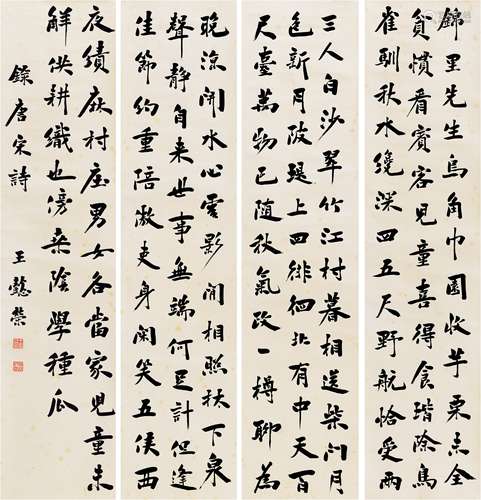 錦里先生烏角巾園收芋栗未全
貧慣看賓客兒童喜得食階除鳥
雀馴秋水纔深四五尺野航恰受兩
三人白沙翠竹江村暮相送柴門月
色新月陂堤上四徘徊北有中天百
尺臺萬物已隨秋氣改一樽聊為
晚涼開水心雲影閒相照林下泉
聲靜自來世事無端何足計但逢
佳節約重陪散吏身閑笑五侯西
夜績麻村庄男女各當家兒童未
解供耕織也傍桑陰學種瓜
錄唐宋詩
王懿榮